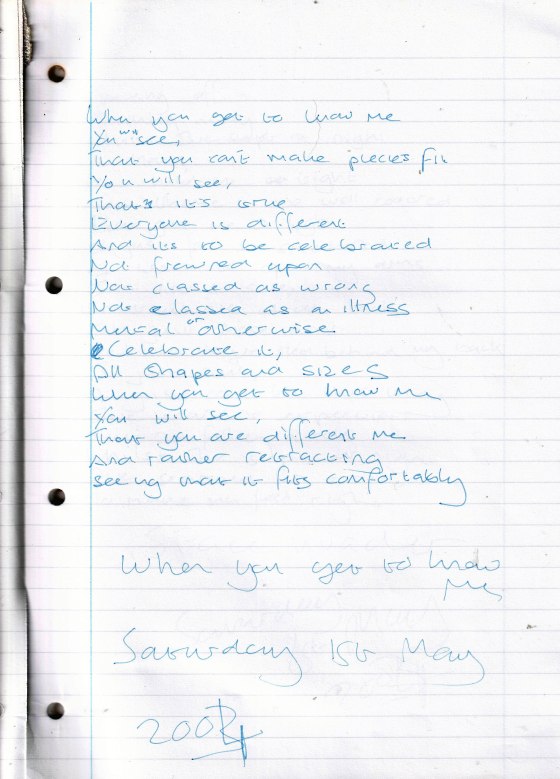 When you get to know me
You will see,
That you can't make pieces fit
You will see,
That it's true
Everyone is different
And its to be celebrated
Not frowned upon
Not classed as wrong
Not classed as an illness
Mental or otherwise
Celebrate it,
All Shapes and sizes
When you get to know me
You will see,
That you are different me
And rather retracting
seeing that it fits comfortably
When you get to know
Me
Saturday 1st May